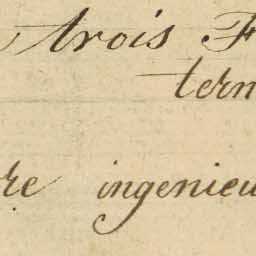 trois F
tern
re ingenieu